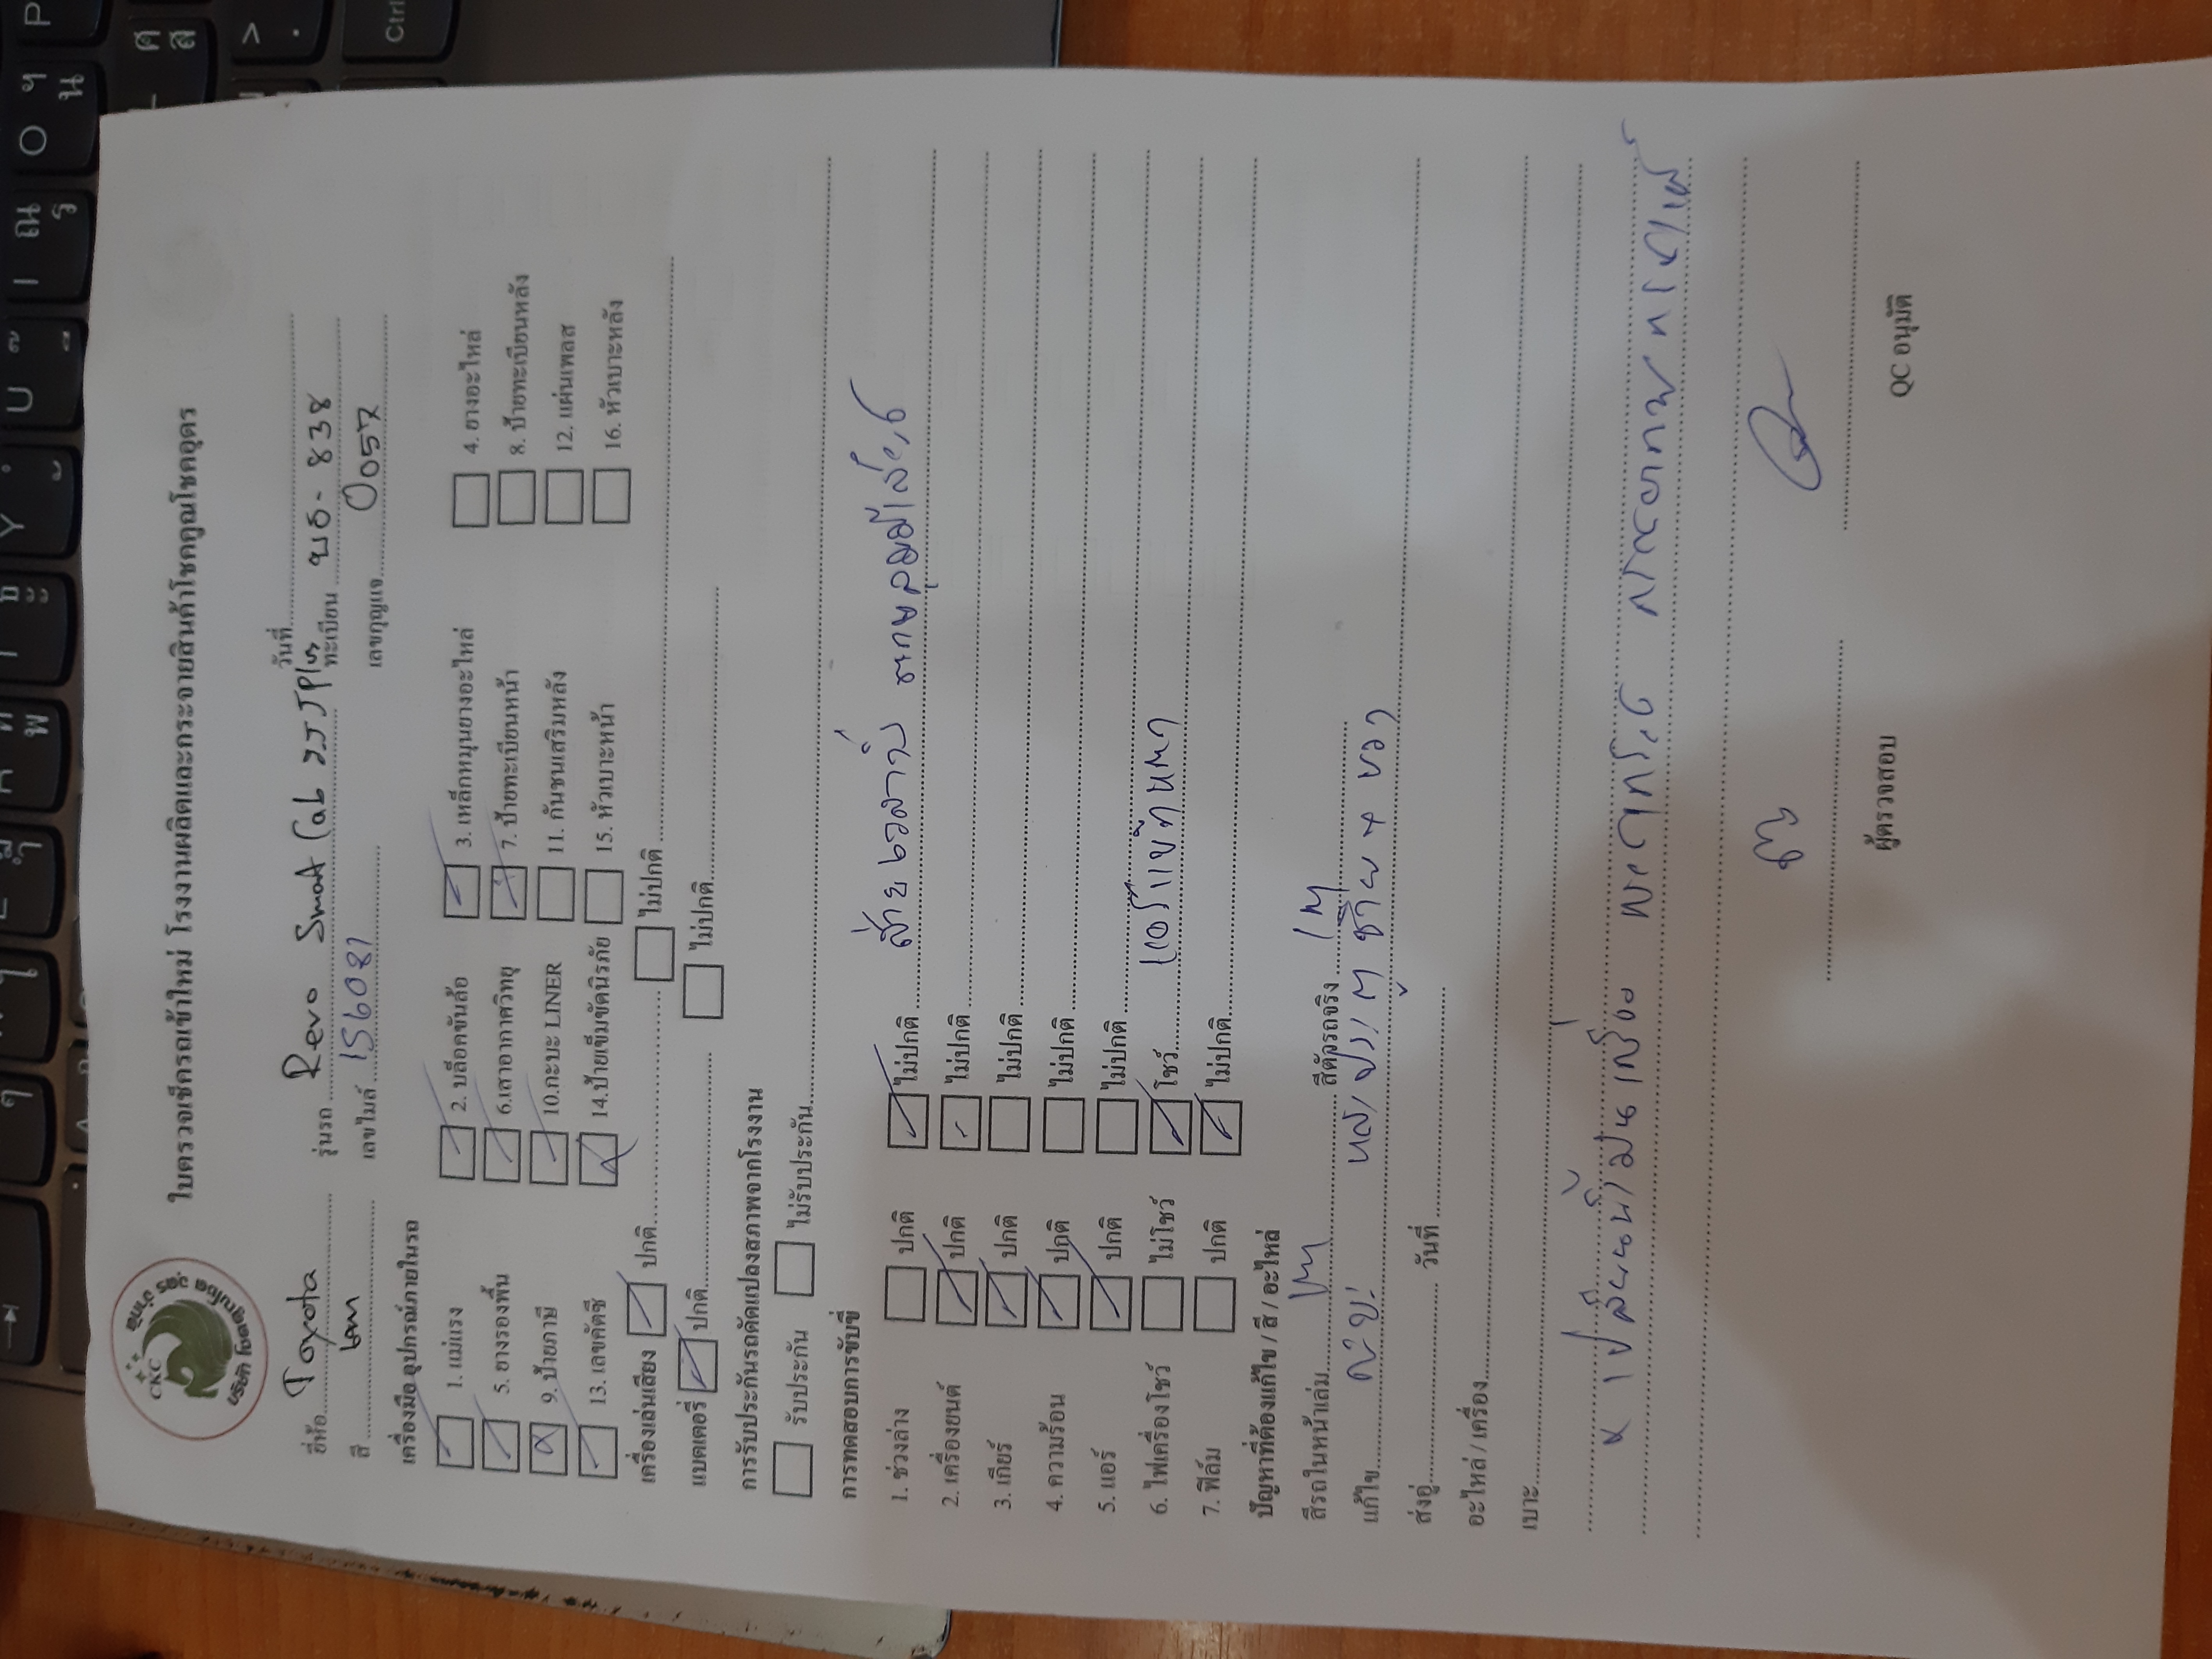 ใบตรวจเช็ครถเข้าใหม่ โรงงานผลิตและกระจายสินค้าโชคคูณโชคอุดร
CKC
ยี่ห้อ Toyota รุ่นรถ Revo Smart Cab 2JJ Plus วันที่
สี เทา เลขไมล์ 156081 ทะเบียน 838
เลขกุญแจ 0057
เครื่องมือ อุปกรณ์ภายในรถ
1. แม่แรง 2. บล็อคขันล้อ 3. เหล็กหมุนยางอะไหล่ 4. ยางอะไหล่
5. ยางรองพื้น 6.เสาอากาศวิทยุ 7. ป้ายทะเบียนหน้า 8. ป้ายทะเบียนหลัง
9. ป้ายภาษี 10.กะบะ LINER 11. กันชนเสริมหลัง 12. แผ่นเพลส
13. เลขคัตซี 14.ป้ายเข็มขัดนิรภัย 15. หัวเบาะหน้า 16. หัวเบาะหลัง
เครื่องเล่นเสียง ปกติ ไม่ปกติ
แบตเตอรี่ ปกติ ไม่ปกติ
การรับประกันรถดัดแปลงสภาพจากโรงงาน
รับประกัน ไม่รับประกัน
การทดสอบการขับขี่
1. ช่วงล่าง ปกติ ไม่ปกติ
2. เครื่องยนต์ ปกติ ไม่ปกติ
3. เกียร์ ปกติ ไม่ปกติ
4. ความร้อน ปกติ ไม่ปกติ
5. แอร์ ปกติ ไม่ปกติ
6. ไฟเครื่องโชว์ ไม่โชว์ โชว์
7. ฟิล์ม ปกติ ไม่ปกติ
ปัญหาที่ต้องแก้ไข / สี / อะไหล่
สีรถในหน้าเล่ม เทา สีตัวรถจริง เทา
แก้ไข ซ้าย + ขวา
ส่งอู่ วันที่
อะไหล่ / เครื่อง
เบาะ
ผู้ตรวจสอบ QC อนุมัติ